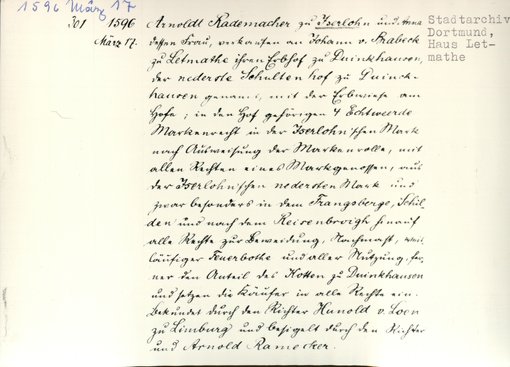 1596 März 17
301 1596 März 17.
Arnoldt Rademacher zu Iserlohn und Anna
dessen Frau, verkaufen an Johann v. Brabeck
zu Letmathe ihren Erbhof zu Duinkhausen,
der nederste Schulten hof zu Duinck-
hausen genannt, mit der Erbwiese am
Hofe; in den Hof gehörigen 4 Echtwerde
Markenrecht in der Iserlohn'schen Mark
nach Ausweisung der Markenrolle, mit
allen Rechten eines Markgenossen, aus
der Iserlohn'schen nedersten Mark und
zwar besonders in dem Frangsberge, Schil-
den und nach dem Reisenbroigh hinauf
alle Rechte zur Beweidung, Nachmast,
läufiger Feuerbothe und aller Nutzung, fer-
ner den Anteil des Kotten zu Duinkhausen
und setzen die Käufer in alle Rechte ein.
Bekundet durch den Richter Hunold v. Loen
zu Limburg und besigelt durch den Richter
und Arnold Ramecker.
Stadtarchiv
Dortmund,
Haus Let-
mathe